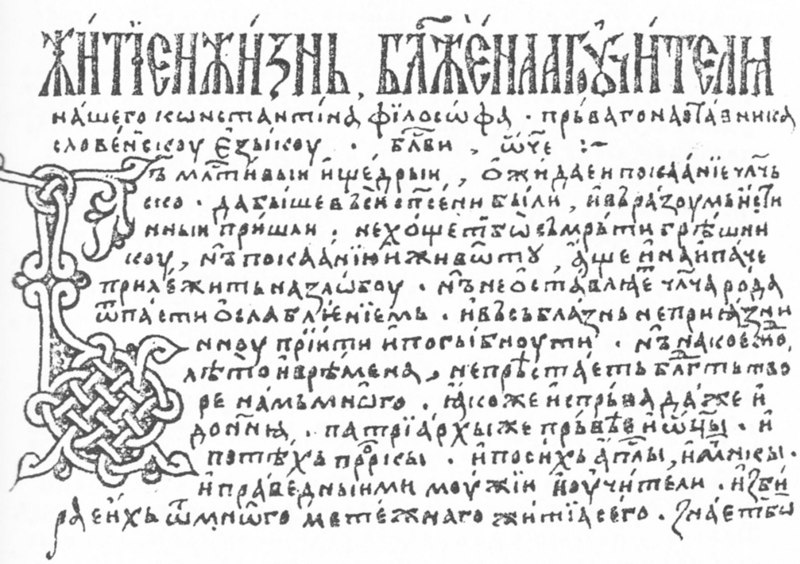 Жи́тїе и҆ жи́знь, бл҃же́наагѡ ᲂу҆чи́телꙗ
на́шего кѡнстанті́на фїлосѡ́фа · пръ́вагонаста́вника
слове́нскоу ѐзы́коу · бл҃ви, ѿч҃е :~
Г҃ъ мл҃ти́выи и҆ ще́дрыи, ѻ҆жида́еи покаа́нїе чл҃чь
ско · да бы́ше въсѝ сп҃сени бы́ли, и҆ въ ра́зоумь и҆́сти
нныи пришли · не хо́щет бѡ̀ съмръ́ти грѣ́шни
коу, нъ̀ покаа́нїю и҆ живѡтꙋ, а҆́ще и҆ на́ипаче
прилѣ́жить на зло́боу · нъ̀ не ѻ҆ставлꙗ́еть чл҃ча ро́да
ѿпа́сти ѻ҆слаблє́нїемь · и҆ въ съ́блазнь непрїꙗ́зни
нноу прїи́ти и҆ погы́бноути · нъ̀ на коеж̾о
лѣ́то и҆ врѣ́мена, не прѣ́стаеть бл҃гть тво
ре на́мь мнѡ́го · ꙗ҆́коже и҆спръ́ва да́же и҆
до нн҃ꙗ, · патрїа́рхы же пръ́вѣе и҆ ѡц҃ы̀ · и҆
потѣ́хь пррⷪ҇кы · и҆ по си́хь ап҃лы, и҆ мч҃никы ·
и҆ пра́ведныими моу́жїи и҆ ᲂу҆чи́тели · и҆зби́
рае и҆́хь ѿ мнѡ́го мете́жнаго житїа̀ сего̀ · зна́ет бѡ̀